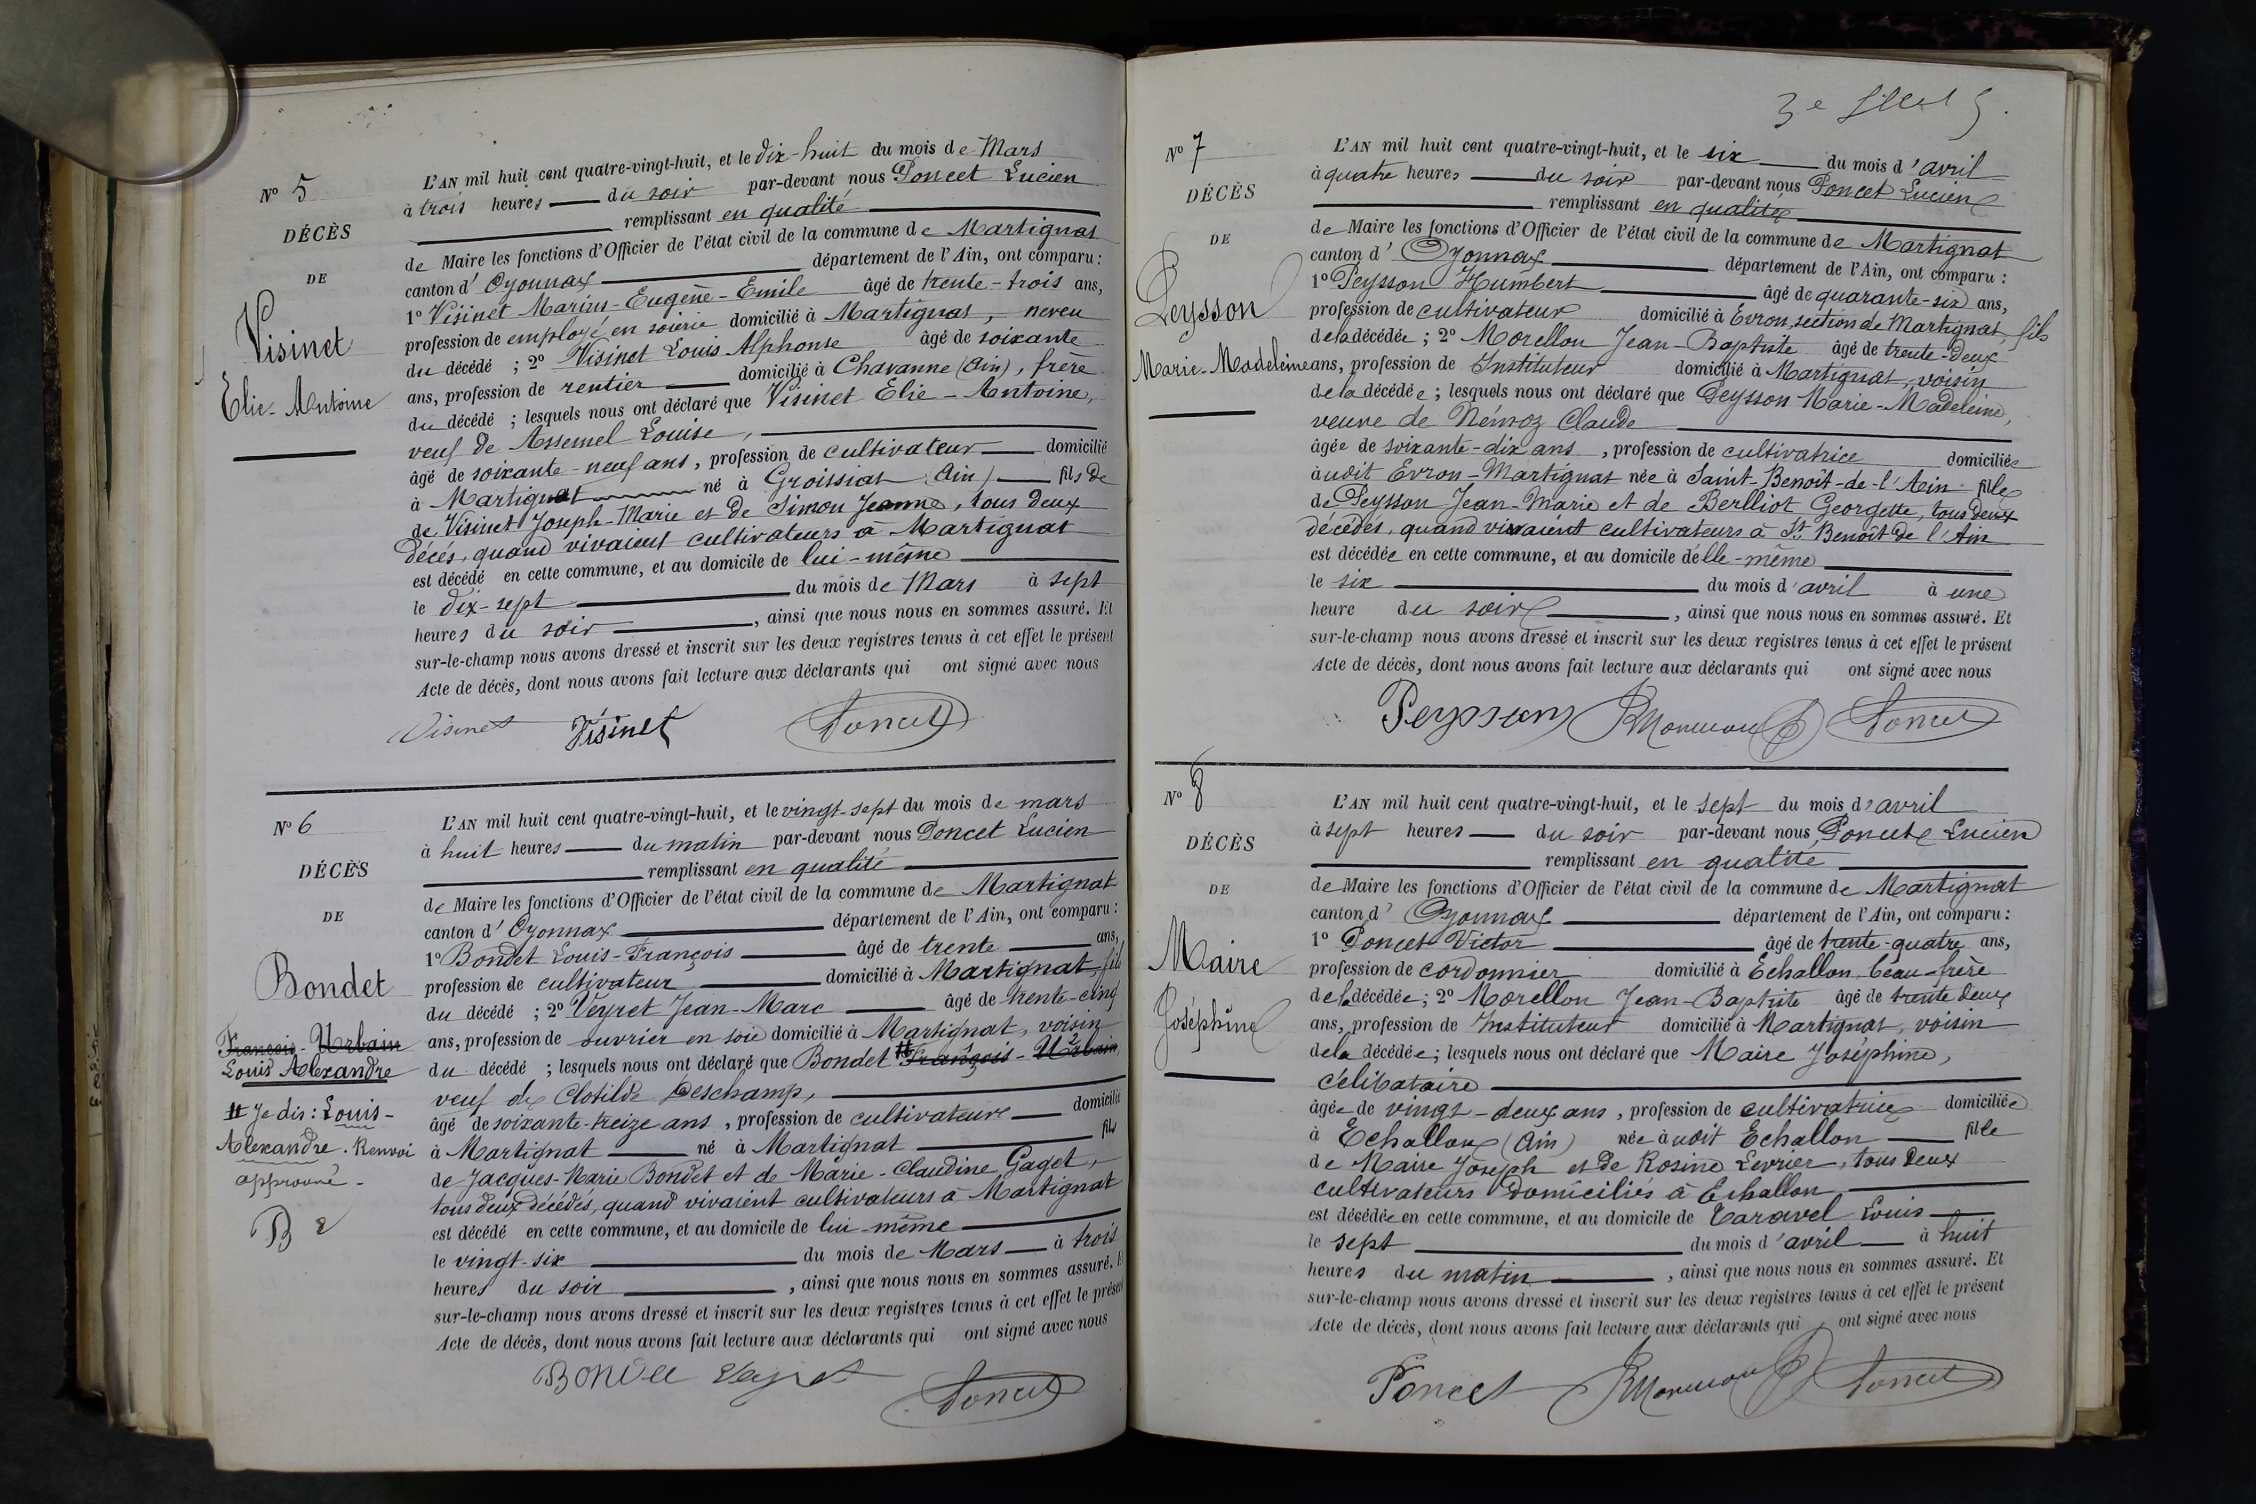 N° 5
DÉCÈS
DE
Visinet
Elie-Antoine
L'AN mil huit cent quatre-vingt-huit, et le dix-huit du mois de Mars
à trois heures du soir par-devant nous Poncet Lucien
remplissant en qualité
de Maire les fonctions d'Officier de l'état civil de la commune de Martignat
canton d' Oyonnax département de l'Ain, ont comparu :
1° Visinet Marius-Eugène-Emile âgé de trente-trois ans,
profession de employé en soierie domicilié à Martignat, neveu
du décédé ; 2° Visinet Louis Alphonse âgé de soixante
ans, profession de rentier domicilié à Chavanne (Ain), frère
du décédé ; lesquels nous ont déclaré que Visinet Elie-Antoine,
veuf de Assemel Louise,
âgé de soixante-neuf ans, profession de cultivateur domicilié
à Martignat né à Groissiat (Ain) fils de
de Visinet Joseph-Marie et de Simon Jeanne, tous deux
décés, quand vivaient cultivateurs à Martignat
est décédé en cette commune, et au domicile de lui-même
le dix-sept du mois de Mars à sept
heures du soir, ainsi que nous nous en sommes assuré. Et
sur-le-champ nous avons dressé et inscrit sur les deux registres tenus à cet effet le présent
Acte de décès, dont nous avons fait lecture aux déclarants qui ont signé avec nous
Visinet Visinet Poncet
N° 6
DÉCÈS
DE
Bondet
François-Urbain
Louis Alexandre
# Je dis : Louis-
Alexandre. Renvoi
approuvé-
L'AN mil huit cent quatre-vingt-huit, et le vingt-sept du mois de mars
à huit heures du matin par-devant nous Poncet Lucien
remplissant en qualité
de Maire les fonctions d'Officier de l'état civil de la commune de Martignat
canton d' Oyonnax département de l'Ain, ont comparu :
1° Bondet Louis-François âgé de trente ans,
profession de cultivateur domicilié à Martignat, fils
du décédé ; 2° Veyret Jean-Marc âgé de trente-cinq
ans, profession de ouvrier en soie domicilié à Martignat, voisin
du décédé ; lesquels nous ont déclaré que Bondet # François-Urbain
veuf de Clotilde Deschamp,
âgé de soixante-treize ans, profession de cultivateur domicilié
à Martignat né à Martignat fils
de Jacques-Marie Bondet et de Marie-Claudine Gaget,
tous deux décédés, quand vivaient cultivateurs à Martignat
est décédé en cette commune, et au domicile de lui-même
le vingt-six du mois de Mars à trois
heures du soir, ainsi que nous nous en sommes assuré. Et
sur-le-champ nous avons dressé et inscrit sur les deux registres tenus à cet effet le présent
Acte de décès, dont nous avons fait lecture aux déclarants qui ont signé avec nous
Bondet Veyret Poncet
N° 7
DÉCÈS
DE
Peysson
Marie-Madeleine
L'AN mil huit cent quatre-vingt-huit, et le six du mois d'avril
à quatre heures du soir par-devant nous Poncet Lucien
remplissant en qualité
de Maire les fonctions d'Officier de l'état civil de la commune de Martignat
canton d' Oyonnax département de l'Ain, ont comparu :
1° Peysson Humbert âgé de quarante-six ans,
profession de cultivateur domicilié à Evron, section de Martignat, fils
de la décédée ; 2° Morellon Jean-Baptiste âgé de trente-deux
ans, profession de Instituteur domicilié à Martignat, voisin
de la décédée ; lesquels nous ont déclaré que Peysson Marie-Madeleine,
veuve de Némoz Claude
âgée de soixante-dix ans, profession de cultivatrice domiciliée
à udit Evron-Martignat née à Saint-Benoît-de-l'Ain fille
de Peysson Jean-Marie et de Berlliot Georgette, tous deux
décédés, quand vivaient cultivateurs à St Benoît de l'Ain
est décédée en cette commune, et au domicile d'elle-même
le six du mois d'avril à une
heure du soir, ainsi que nous nous en sommes assuré. Et
sur-le-champ nous avons dressé et inscrit sur les deux registres tenus à cet effet le présent
Acte de décès, dont nous avons fait lecture aux déclarants qui ont signé avec nous
Peysson Morellon Poncet
N° 8
DÉCÈS
DE
Maire
Joséphine
L'AN mil huit cent quatre-vingt-huit, et le sept du mois d'avril
à sept heures du soir par-devant nous Poncet Lucien
remplissant en qualité
de Maire les fonctions d'Officier de l'état civil de la commune de Martignat
canton d' Oyonnax département de l'Ain, ont comparu :
1° Poncet Victor âgé de trente-quatre ans,
profession de cordonnier domicilié à Echallon, beau-frère
de la décédée ; 2° Morellon Jean-Baptiste âgé de trente deux
ans, profession de Instituteur domicilié à Martignat, voisin
de la décédée ; lesquels nous ont déclaré que Maire Joséphine,
célibataire
âgée de vingt-deux ans, profession de cultivatrice domiciliée
à Echallon (Ain) née à udit Echallon fille
de Maire Joseph et de Rosine Levrier, tous deux
cultivateurs domiciliés à Echallon
est décédée en cette commune, et au domicile de Taravel Louis
le sept du mois d'avril à huit
heures du matin, ainsi que nous nous en sommes assuré. Et
sur-le-champ nous avons dressé et inscrit sur les deux registres tenus à cet effet le présent
Acte de décès, dont nous avons fait lecture aux déclarants qui ont signé avec nous
Poncet Morellon Poncet